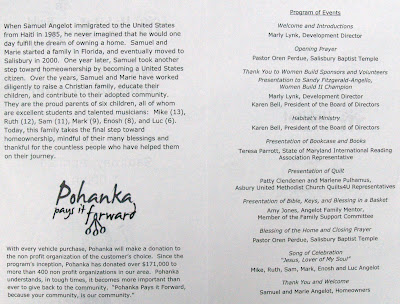 When Samuel Angelot immigrated to the United States
from Haiti in 1985, he never imagined that he would one
day fulfill the dream of owning a home. Samuel and
Marie started a family in Florida, and eventually moved to
Salisbury in 2000. One year later, Samuel took another
step toward homeownership by becoming a United States
citizen. Over the years, Samuel and Marie have worked
diligently to raise a Christian family, educate their
children, and contribute to their adopted community.
They are the proud parents of six children, all of whom
are excellent students and talented musicians: Mike (13),
Ruth (12), Sam (11), Mark (9), Enosh (8), and Luc (6).
Today, this family takes the final step toward
homeownership, mindful of their many blessings and
thankful for the countless people who have helped them
on their journey.
Pohanka
pays it forward
With every vehicle purchase, Pohanka will make a donation to
the non profit organization of the customer's choice. Since the
program's inception, Pohanka has donated over $171,000 to
more than 400 non profit organizations in our area. Pohanka
understands, in tough times, it becomes more important than
ever to give back to the community. "Pohanka Pays it Forward,
because your community, is our community."
Program of Events
Welcome and Introductions
Marly Lynk, Development Director
Opening Prayer
Pastor Oren Perdue, Salisbury Baptist Temple
Thank You to Women Build Sponsors and Volunteers
Presentation to Sandy Fitzgerald-Angello,
Women Build II Champion
Marly Lynk, Development Director
Karen Bell, President of the Board of Directors
Habitat's Ministry
Karen Bell, President of the Board of Directors
Presentation of Bookcase and Books
Teresa Parrott, State of Maryland International Reading
Association Representative
Presentation of Quilt
Patty Clendenen and Marlene Pulhamus,
Asbury United Methodist Church Quilts4U Representatives
Presentation of Bible, Keys, and Blessing in a Basket
Amy Jones, Angelot Family Mentor,
Member of the Family Support Committee
Blessing of the Home and Closing Prayer
Pastor Oren Perdue, Salisbury Baptist Temple
Song of Celebration
"Jesus, Lover of My Soul"
Mike, Ruth, Sam, Mark, Enosh and Luc Angelot
Thank You and Welcome
Samuel and Marie Angelot, Homeowners